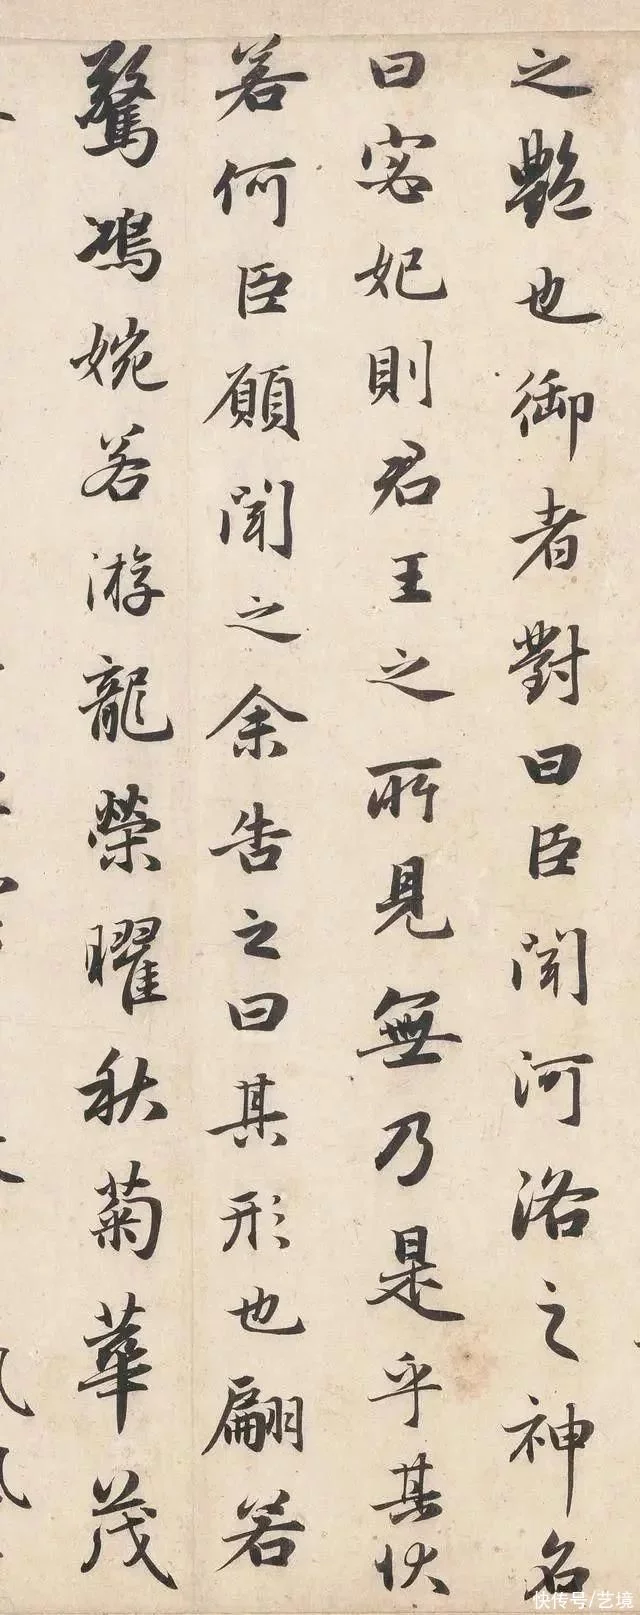 之豔也御者對曰臣聞河洛之神名
曰宓妃則君王之所見無乃是乎其狀
若何臣願聞之余告之曰其形也翩若
驚鴻婉若游龍榮曜秋菊華茂
快传号/艺境